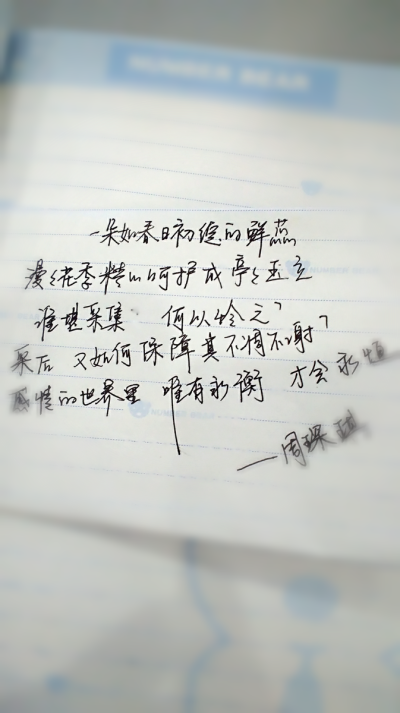 一朵如春日初绽的鲜蕊
漫漫花季精心呵护成亭亭玉立
谁堪采集 何以给之?
采后 又如何保障其不凋不谢?
感情的世界里 唯有永衡 才会永恒
—周琛琪